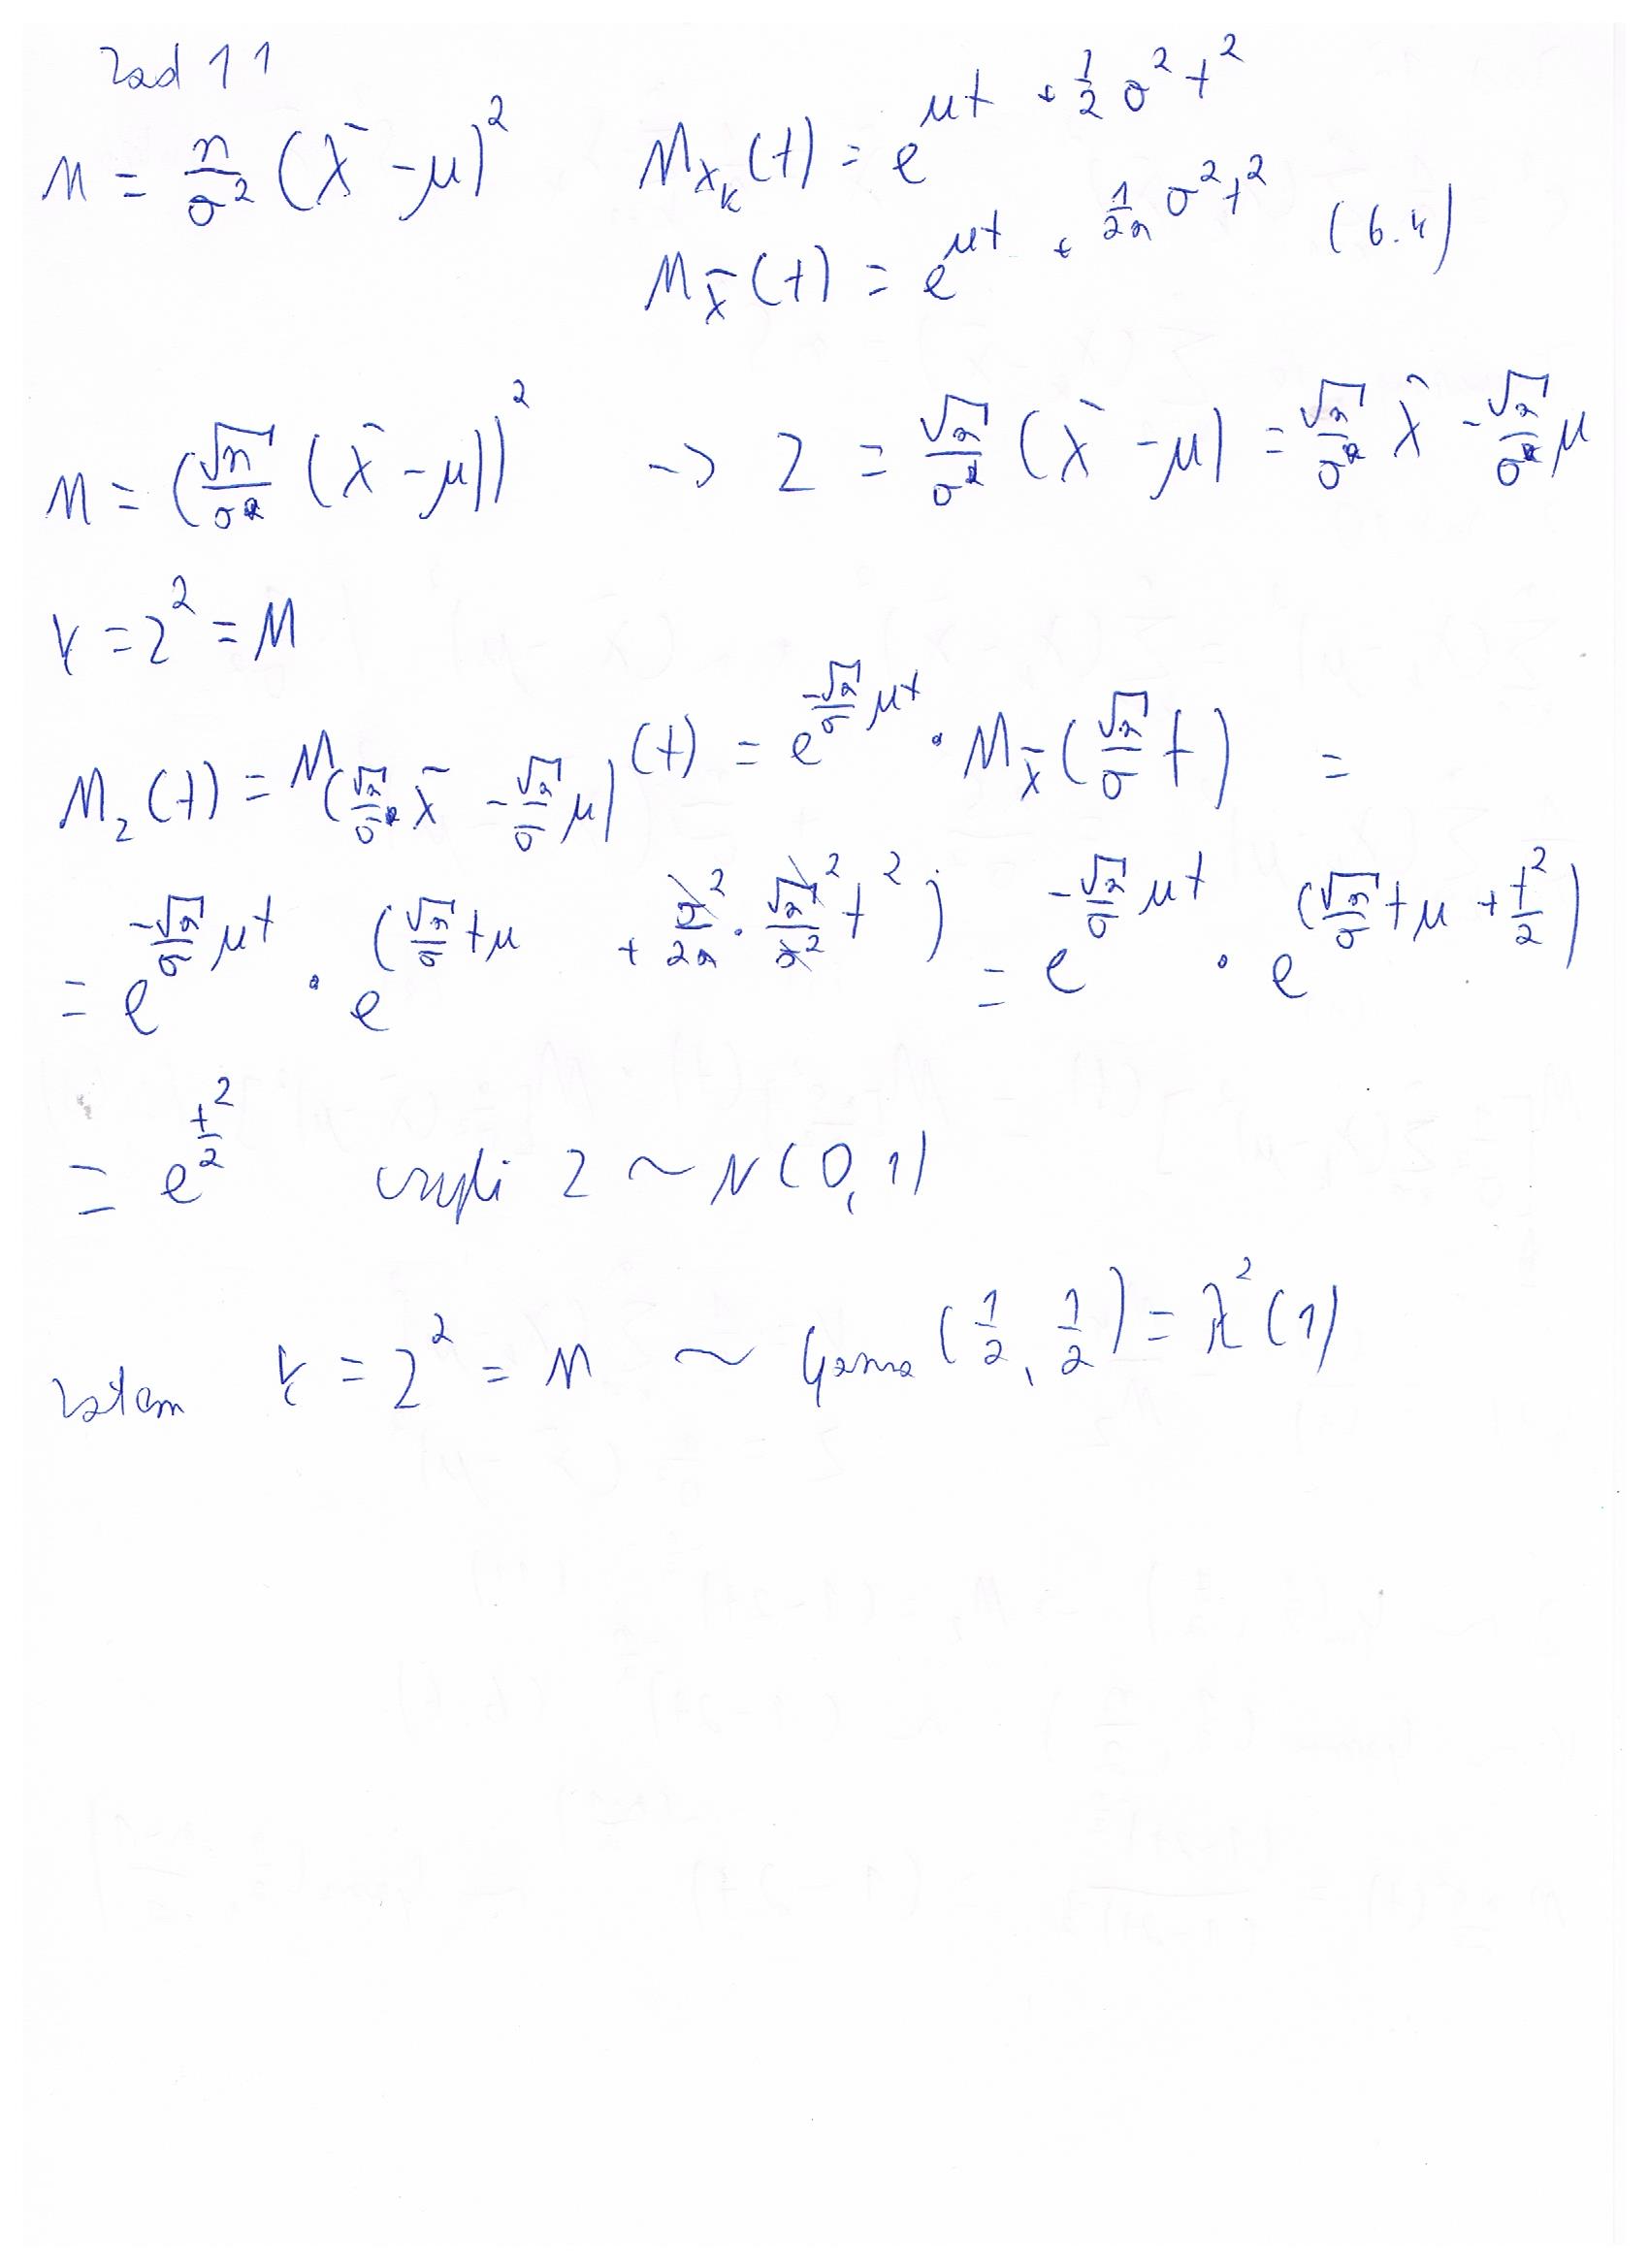 Zad 11
M = n/σ² (X̄ - μ)²
M_{X_k}(t) = e^{μt + 1/2 σ²t²}
M_{X̄}(t) = e^{μt + 1/2n σ²t²} (6.4)
M = (√n/σ (X̄ - μ))² -> Z = √n/σ (X̄ - μ) = √n/σ X̄ - √n/σ μ
Y = Z² = M
M_Z(t) = M_{(√n/σ X̄ - √n/σ μ)}(t) = e^{-√n/σ μt} · M_{X̄}(√n/σ t) =
= e^{-√n/σ μt} · e^{(√n/σ tμ + σ²/2n · √n²/σ² t²)} = e^{-√n/σ μt} · e^{(√n/σ tμ + t²/2)}
= e^{t²/2} czyli Z ~ N(0,1)
zatem Y = Z² = M ~ Gamma(1/2, 1/2) = χ²(1)